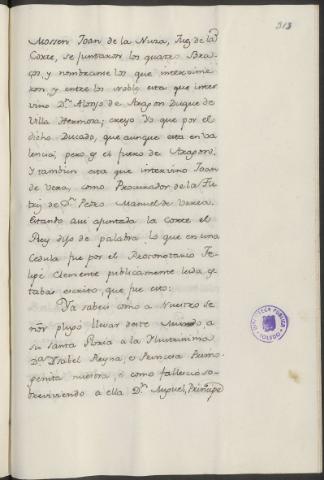 313
Mossen Joan de la Nuza, Jug. de la
Corte, se juntaron los quatro Bra-
zos, y nombranse los que intervinie-
ron, y entre los Nobles esta que inter
vino D.n Alonso de Aragon Duque de
Villa Hermosa; creyo Yo que por el
dicho Ducado, que aunque esta en Va
lencia, pero es el fuero de Aragon.
Y tambien esta que intervino Joan
de Vera, como Procurador de la Tu
triz de D.n Pedro Manuel de Urrea.
Estando aqui ajuntada la Corte el
Rey dijo de palabra lo que en una
Cedula fue por el Protonotario Fe-
lipe Clemente publicamente leida, y es
taba escrito, que fue esto:
Ya sabeis como a Nuestro Se
ñor plugo llevar deste Mundo a
su santa Gloria a la Ilustrisima
D.a Ysabel Reyna, e Princesa Primo-
genita nuestra, e como fallecio so-
breviviendo a ella D.n Miguel, Principe
BIBLIOTECA PUBLICA
TOLEDO